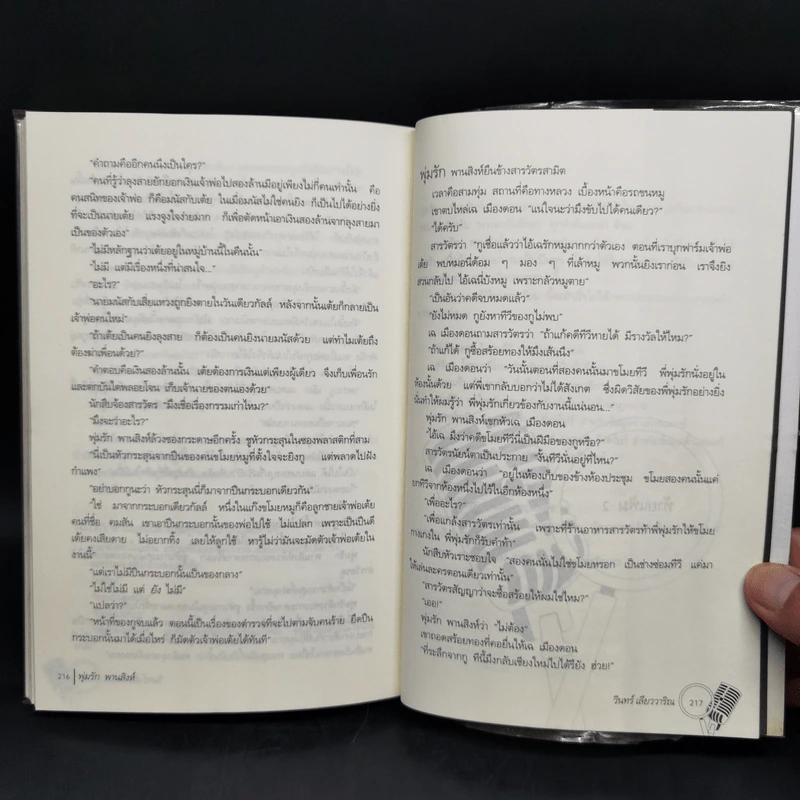 “คำถามคืออีกคนนึงเป็นใคร?”
“คนที่รู้ว่าลุงสายยักยอกเงินเจ้าพ่อไปสองล้านมีอยู่เพียงไม่กี่คนเท่านั้น คือ
คนสนิทของเจ้าพ่อ ก็คือมนัสกับเต้ย ในเมื่อมนัสไม่ใช่คนยิง ก็เป็นไปได้อย่างยิ่ง
ที่จะเป็นนายเต้ย แรงจูงใจง่ายมาก ก็เพื่อตัดหน้าเอาเงินสองล้านจากลุงสายมา
เป็นของตัวเอง”
“ไม่มีหลักฐานว่าเต้ยอยู่ในหมู่บ้านนี้ในคืนนั้น”
“ไม่มี แต่มีเรื่องหนึ่งที่น่าสนใจ...”
“อะไร?”
“นายมนัสกับเสี่ยแหวงถูกยิงตายในวันเดียวกัลล์ หลังจากนั้นเต้ยก็กลายเป็น
เจ้าพ่อคนใหม่”
“ถ้าเต้ยเป็นคนยิงลุงสาย ก็ต้องเป็นคนยิงนายมนัสด้วย แต่ทำไมเต้ยถึง
ต้องฆ่าเพื่อนด้วย?”
“คำตอบคือเงินสองล้านนั้น เต้ยต้องการเงินแต่เพียงผู้เดียว จึงเก็บเพื่อนรัก
และตกบันไดพลอยโจน เก็บเจ้านายของตนเองด้วย”
นักสืบจ้องสารวัตร “มึงเชื่อเรื่องกรรมเก่าไหม?”
“มึงจะว่าอะไร?”
พุ่มรัก พานสิงห์ล้วงซองกระดาษอีกครั้ง ชูหัวกระสุนในซองพลาสติกที่สาม
“นี่เป็นหัวกระสุนจากปืนของคนขโมยหมูที่ตั้งใจจะยิงกู แต่พลาดไปฝัง
กำแพง”
“อย่าบอกกูนะว่า หัวกระสุนนี่ก็มาจากปืนกระบอกเดียวกัน”
“ใช่ มาจากกระบอกเดียวกัลล์ หนึ่งในแก๊งขโมยหมูก็คือลูกชายเจ้าพ่อเต้ย
คนที่ชื่อ คมสัน เขาเอาปืนกระบอกนั้นของพ่อไปใช้ ไม่แปลก เพราะเป็นปืนดี
เต้ยคงเสียดาย ไม่อยากทิ้ง เลยให้ลูกใช้ หารู้ไม่ว่ามันจะมัดตัวเจ้าพ่อเต้ยใน
งานนี้”
“แต่เราไม่มีปืนกระบอกนั้นเป็นของกลาง”
“ไม่ใช่ไม่มี แต่ ยัง ไม่มี”
“แปลว่า?”
“หน้าที่ของกูจบแล้ว ตอนนี้เป็นเรื่องของตำรวจที่จะไปตามจับคนร้าย ยึดปืน
กระบอกนั้นมาได้เมื่อไหร่ ก็มัดตัวเจ้าพ่อเต้ยได้ทันที”
216 | พุ่มรัก พานสิงห์
พุ่มรัก พานสิงห์ยืนข้างสารวัตรสามิต
เวลาคือสามทุ่ม สถานที่คือทางหลวง เบื้องหน้าคือรถขนหมู
เขาตบไหล่เฉ เมืองดอน “แน่ใจนะว่ามึงขับไปได้คนเดียว?”
“ได้ครับ”
สารวัตรว่า “กูเชื่อแล้วว่าไอ้เฉรักหมูมากกว่าตัวเอง ตอนที่เราบุกฟาร์มเจ้าพ่อ
เต้ย พบหมอนี่ด้อม ๆ มอง ๆ ที่เล้าหมู พวกนั้นยิงเราก่อน เราจึงยิง
สวนกลับไป ไอ้เฉนี่บังหมู เพราะกลัวหมูตาย”
“เป็นอันว่าคดีจบหมดแล้ว”
“ยังไม่หมด กูยังหาทีวีของกูไม่พบ”
เฉ เมืองดอนถามสารวัตรว่า “ถ้าแก้คดีทีวีหายได้ มีรางวัลให้ไหม?”
“ถ้าแก้ได้ กูซื้อสร้อยทองให้มึงเส้นนึง”
เฉ เมืองดอนว่า “วันนั้นตอนที่สองคนนั้นมาขโมยทีวี พี่พุ่มรักนั่งอยู่ใน
ห้องนั้นด้วย แต่พี่เขากลับบอกว่าไม่ได้สังเกต ซึ่งผิดวิสัยของพี่พุ่มรักอย่างยิ่ง
นั่นทำให้ผมรู้ว่า พี่พุ่มรักเกี่ยวข้องกับงานนี้แน่นอน...”
พุ่มรัก พานสิงห์เขกหัวเฉ เมืองดอน
“ไอ้เฉ มึงว่าคดีขโมยทีวีนี่เป็นฝีมือของกูหรือ?”
สารวัตรนัยน์ตาเป็นประกาย “งั้นทีวีนั่นอยู่ที่ไหน?”
เฉ เมืองดอนว่า “อยู่ในห้องเก็บของข้างห้องประชุม ขโมยสองคนนั้นแค่
ยกทีวีจากห้องหนึ่งไปไว้ในอีกห้องหนึ่ง”
“เพื่ออะไร?”
“เพื่อแกล้งสารวัตรเท่านั้น เพราะที่ร้านอาหารสารวัตรท้าพี่พุ่มรักให้ขโมย
กางเกงใน พี่พุ่มรักก็รับคำท้า”
นักสืบหัวเราะชอบใจ “สองคนนั้นไม่ใช่ขโมยหรอก เป็นช่างซ่อมทีวี แค่มา
ให้เล่นละครตอนเดียวเท่านั้น”
“สารวัตรสัญญาว่าจะซื้อสร้อยให้ผมใช่ไหม?”
“เออ!”
พุ่มรัก พานสิงห์ว่า “ไม่ต้อง”
เขาถอดสร้อยทองที่คอยื่นให้เฉ เมืองดอน
“ที่ระลึกจากกู ทีนี้มึงกลับเชียงใหม่ไปได้รึยัง ฮ่วย!”
วินทร์ เลียววาริณ 217